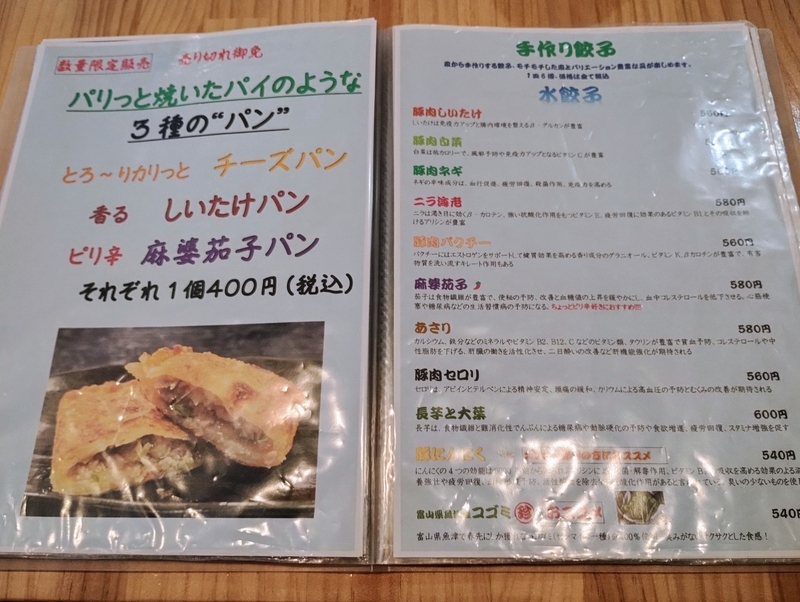 数量限定販売 売り切れ御免
パリっと焼いたパイのような
3種の“パン”
とろ～りカリっと チーズパン
香る しいたけパン
ピリ辛 麻婆茄子パン
それぞれ1個400円(税込)
手作り餃子
皮から手作りする餃子、モチモチした皮とバリエーション豊富な具が楽しめます。
1皿6個、価格は全て税込
水餃子
豚肉しいたけ
しいたけは免疫力アップと腸内環境を整えるβ-グルカンが豊富
豚肉白菜
白菜は低カロリーで、風邪予防や免疫力アップとなるビタミンCが豊富
豚肉ネギ
ネギの辛味成分は、血行促進、疲労回復、殺菌作用、免疫力を高める
ニラ海老 580円
ニラは渇き目に効くβ-カロテン、強い抗酸化作用をもつビタミンE、疲労回復に効果のあるビタミンB1とその吸収を助
けるアリシンが豊富
豚肉パクチー 560円
パクチーにはエストロゲンをサポートして健胃効果を高める香り成分のゲラニオール、ビタミンK、βカロチンが豊富で、有害
物質を洗い流すキレート作用もある
麻婆茄子 580円
茄子は食物繊維が豊富で、便秘の予防、改善と血糖値の上昇を緩やかにし、血中コレステロールを低下させる。心筋梗
塞や糖尿病などの生活習慣病の予防になる。ちょっとピリ辛好きにおすすめ!!!
あさり 580円
カルシウム、鉄分などのミネラルやビタミンB2、B12、Cなどのビタミン類、タウリンが豊富で貧血予防、コレステロールや中
性脂肪を下げる、肝臓の働きを活性化させ、二日酔いの改善など肝機能強化が期待される
豚肉セロリ 560円
セロリは、アピインとテルペンによる精神安定、頭痛の緩和、カリウムによる高血圧の予防とむくみの改善が期待される
長芋と大葉 600円
長芋は、食物繊維と難消化性でんぷんによる糖尿病や動脈硬化の予防や食欲増進、疲労回復、スタミナ増強を促す
豚にんにく オススメ 540円
にんにくの4つの効能は
富山県 コゴミ 540円
富山県魚津で春先にか
サクサクとした食感!